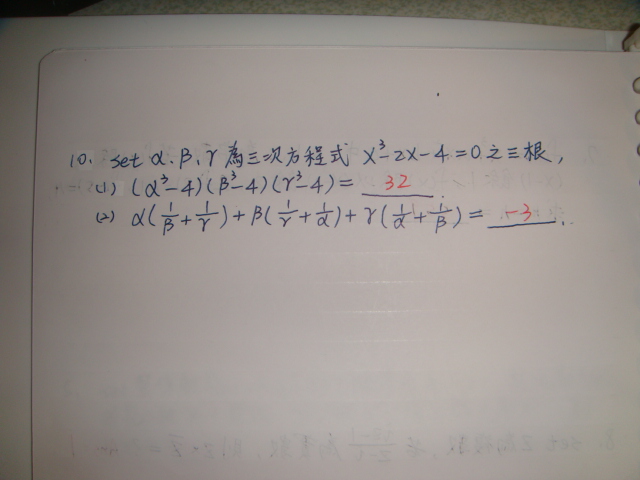 10. set α、β、γ 為三次方程式 x³-2x-4=0 之三根，
(1) (α³-4)(β³-4)(γ³-4) = 32 .
(2) α(1/β+1/γ)+β(1/γ+1/α)+γ(1/α+1/β) = -3 .